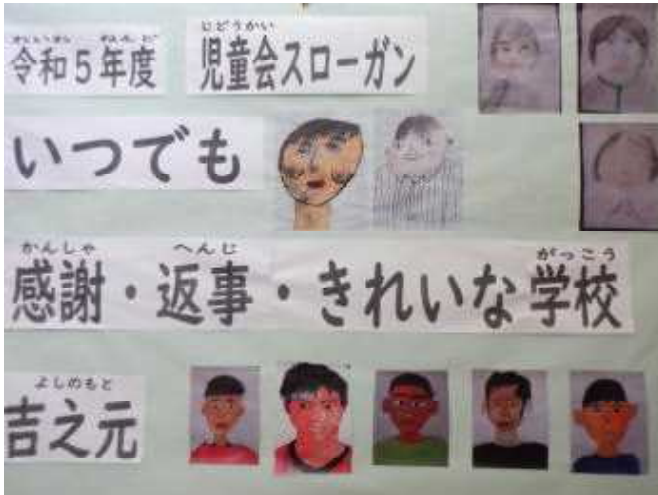 れいわ ねんど じどうかい
令和5年度 児童会スローガン
いつでも
かんしゃ へんじ がっこう
感謝・返事・きれいな学校
よしのもと
吉之元